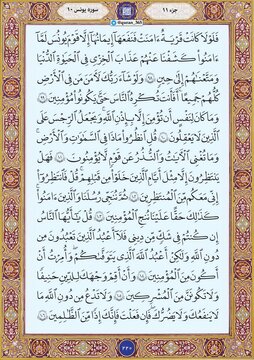 جزء ١١
@quran_365
سوره یونس ١٠
فَلَوْلَا كَانَتْ قَرْيَةٌ ءَامَنَتْ فَنَفَعَهَآ إِيمَٰنُهَآ إِلَّا قَوْمَ يُونُسَ لَمَّآ
ءَامَنُوا۟ كَشَفْنَا عَنْهُمْ عَذَابَ ٱلْخِزْىِ فِى ٱلْحَيَوٰةِ ٱلدُّنْيَا
وَمَتَّعْنَٰهُمْ إِلَىٰ حِينٍ ٩٨ وَلَوْ شَآءَ رَبُّكَ لَءَامَنَ مَن فِى ٱلْأَرْضِ
كُلُّهُمْ جَمِيعًا أَفَأَنتَ تُكْرِهُ ٱلنَّاسَ حَتَّىٰ يَكُونُوا۟ مُؤْمِنِينَ ٩٩
وَمَا كَانَ لِنَفْسٍ أَن تُؤْمِنَ إِلَّا بِإِذْنِ ٱللَّهِ وَيَجْعَلُ ٱلرِّجْسَ عَلَى
ٱلَّذِينَ لَا يَعْقِلُونَ ١٠٠ قُلِ ٱنظُرُوا۟ مَاذَا فِى ٱلسَّمَٰوَٰتِ وَٱلْأَرْضِ
وَمَا تُغْنِى ٱلْءَايَٰتُ وَٱلنُّذُرُ عَن قَوْمٍ لَّا يُؤْمِنُونَ ١٠١ فَهَلْ
يَنتَظِرُونَ إِلَّا مِثْلَ أَيَّامِ ٱلَّذِينَ خَلَوْا۟ مِن قَبْلِهِمْ قُلْ فَٱنتَظِرُوٓا۟
إِنِّى مَعَكُم مِّنَ ٱلْمُنتَظِرِينَ ١٠٢ ثُمَّ نُنَجِّى رُسُلَنَا وَٱلَّذِينَ ءَامَنُوا۟
كَذَٰلِكَ حَقًّا عَلَيْنَا نُنجِ ٱلْمُؤْمِنِينَ ١٠٣ قُلْ يَٰٓأَيُّهَا ٱلنَّاسُ
إِن كُنتُمْ فِى شَكٍّ مِّن دِينِى فَلَآ أَعْبُدُ ٱلَّذِينَ تَعْبُدُونَ مِن
دُونِ ٱللَّهِ وَلَٰكِنْ أَعْبُدُ ٱللَّهَ ٱلَّذِى يَتَوَفَّىٰكُمْ وَأُمِرْتُ أَنْ
أَكُونَ مِنَ ٱلْمُؤْمِنِينَ ١٠٤ وَأَنْ أَقِمْ وَجْهَكَ لِلدِّينِ حَنِيفًا
وَلَا تَكُونَنَّ مِنَ ٱلْمُشْرِكِينَ ١٠٥ وَلَا تَدْعُ مِن دُونِ ٱللَّهِ مَا
لَا يَنفَعُكَ وَلَا يَضُرُّكَ فَإِن فَعَلْتَ فَإِنَّكَ إِذًا مِّنَ ٱلظَّٰلِمِينَ ١٠٦
٢٢٠